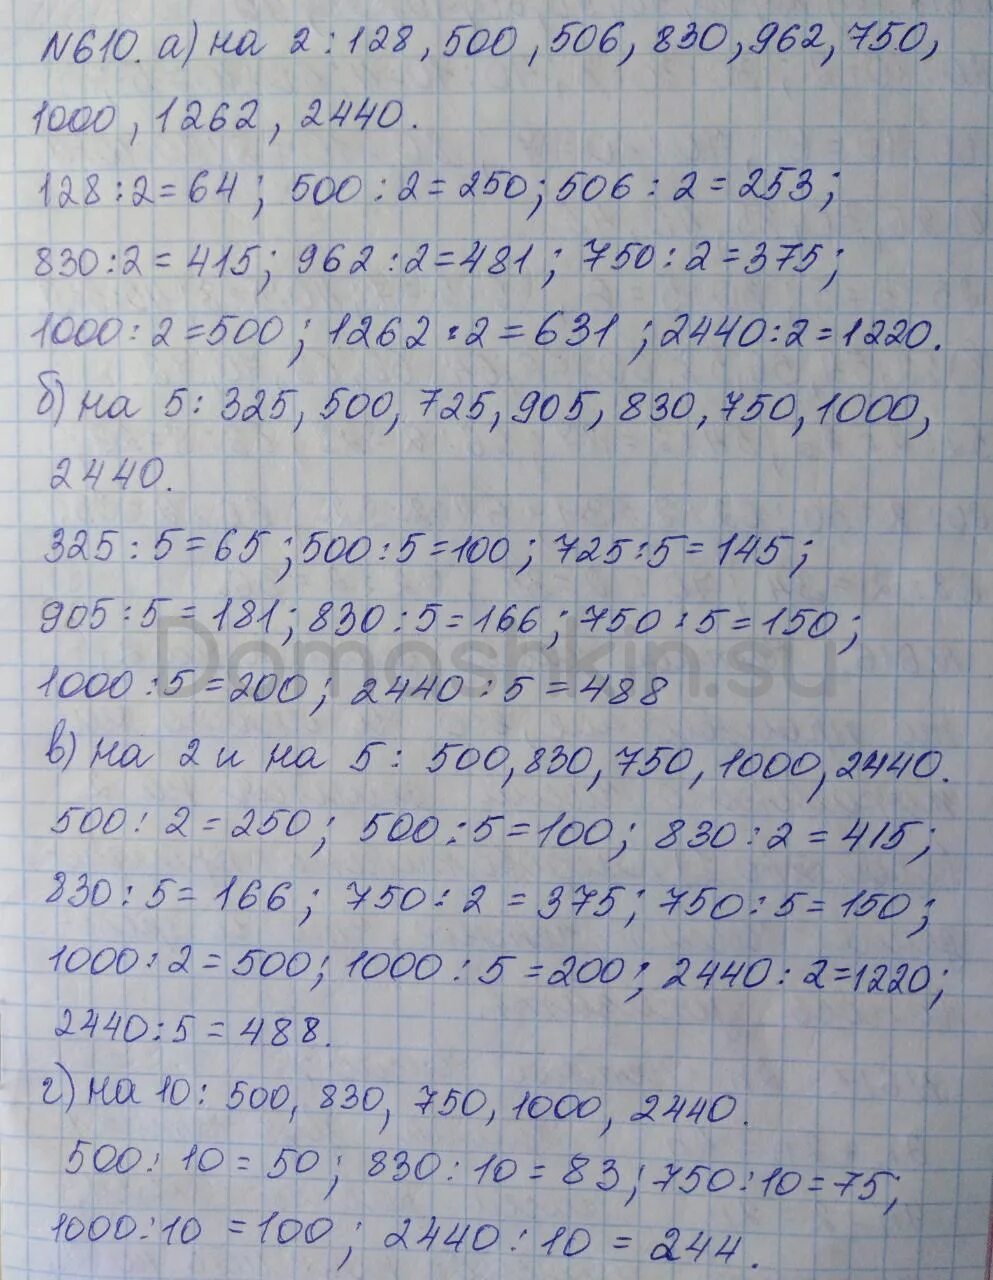 №610. а) на 2 : 128, 500, 506, 830, 962, 750,
1000, 1262, 2440.
128 : 2 = 64; 500 : 2 = 250; 506 : 2 = 253;
830 : 2 = 415; 962 : 2 = 481; 750 : 2 = 375;
1000 : 2 = 500; 1262 : 2 = 631; 2440 : 2 = 1220.
б) на 5 : 325, 500, 725, 905, 830, 750, 1000,
2440.
325 : 5 = 65; 500 : 5 = 100; 725 : 5 = 145;
905 : 5 = 181; 830 : 5 = 166; 750 : 5 = 150;
Domoshkin.su
1000 : 5 = 200; 2440 : 5 = 488
в) на 2 и на 5 : 500, 830, 750, 1000, 2440.
500 : 2 = 250; 500 : 5 = 100; 830 : 2 = 415;
830 : 5 = 166; 750 : 2 = 375; 750 : 5 = 150;
1000 : 2 = 500; 1000 : 5 = 200; 2440 : 2 = 1220;
2440 : 5 = 488.
г) на 10 : 500, 830, 750, 1000, 2440.
500 : 10 = 50; 830 : 10 = 83; 750 : 10 = 75;
1000 : 10 = 100; 2440 : 10 = 244.